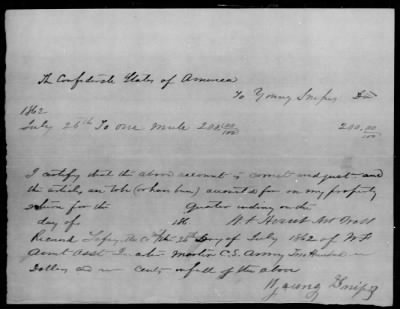 The Confederate States of America
To Young Snipes Dr
1862
July 26th To one mule 200.00/100 200.00/100
I certify that the above account is correct and just and
the articles are to be (or have been) accounted for on my property
return for the Quarter ending on the
day of 186
Received the 26th Day of July 1862 of W F
Asst Quarter Master C.S. Army Two Hundred
Dollars and no Cents in full of the above
Young Snipes